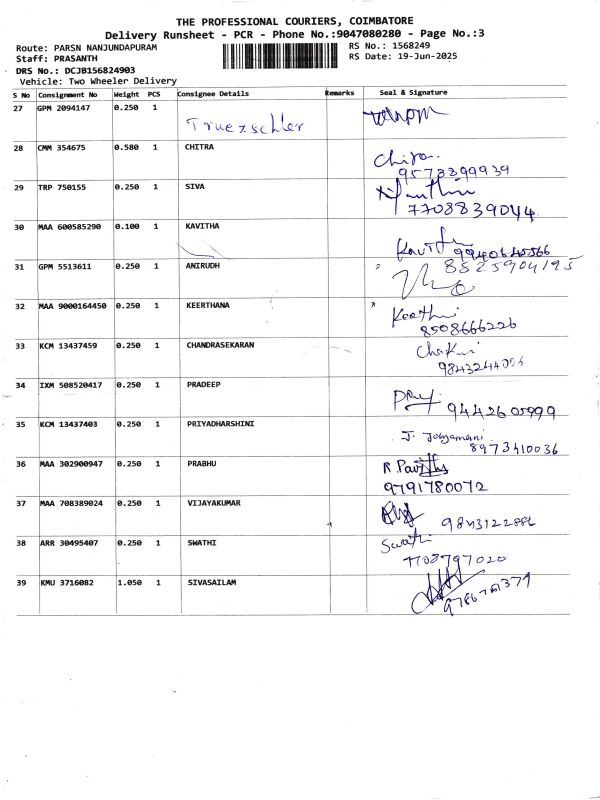 THE PROFESSIONAL COURIERS, COIMBATORE
Delivery Runsheet - PCR - Phone No.:9047080280 - Page No.:3
Route: PARSN NANJUNDAPURAM RS No.: 1568249
Staff: PRASANTH RS Date: 19-Jun-2025
DRS No.: DCJB156824903
Vehicle: Two Wheeler Delivery
S No Consignment No Weight PCS Consignee Details Remarks Seal & Signature
27 GPM 2094147 0.250 1
Truezschler
28 CMM 354675 0.580 1 CHITRA
Chitra
9578399939
29 TRP 750155 0.250 1 SIVA
7708839044
30 MAA 600585290 0.100 1 KAVITHA
Kavitha
31 GPM 5513611 0.250 1 ANIRUDH 8825904195
32 MAA 9000164450 0.250 1 KEERTHANA
Keerthi
8508666226
33 KCM 13437459 0.250 1 CHANDRASEKARAN
34 IXM 508520417 0.250 1 PRADEEP
9442605999
35 KCM 13437403 0.250 1 PRIYADHARSHINI
J. Jeyamani
8973410036
36 MAA 302900947 0.250 1 PRABHU
9791780072
37 MAA 708389024 0.250 1 VIJAYAKUMAR
38 ARR 30495407 0.250 1 SWATHI
Swathi
7708797020
39 KMU 3716082 1.050 1 SIVASAILAM